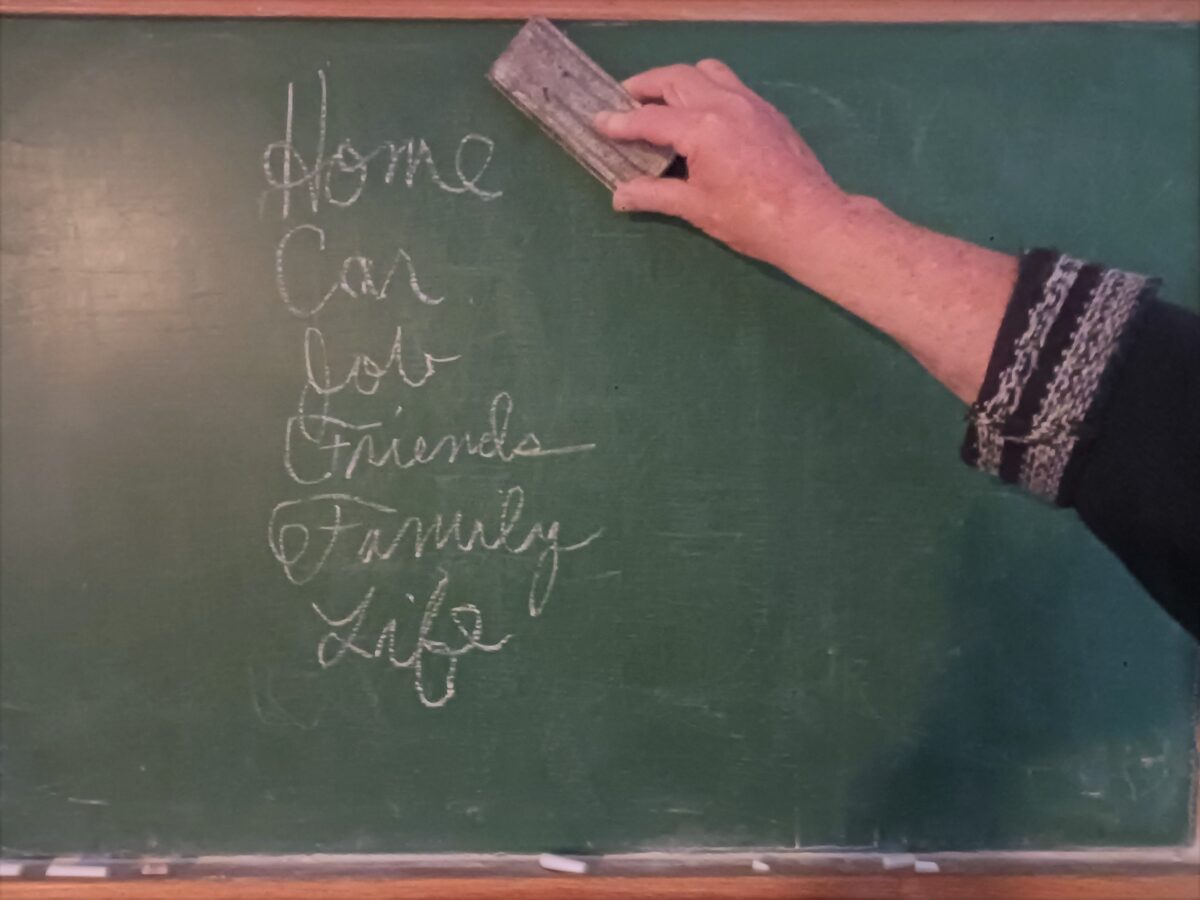 Home
Car
Job
Friends
Family
Life